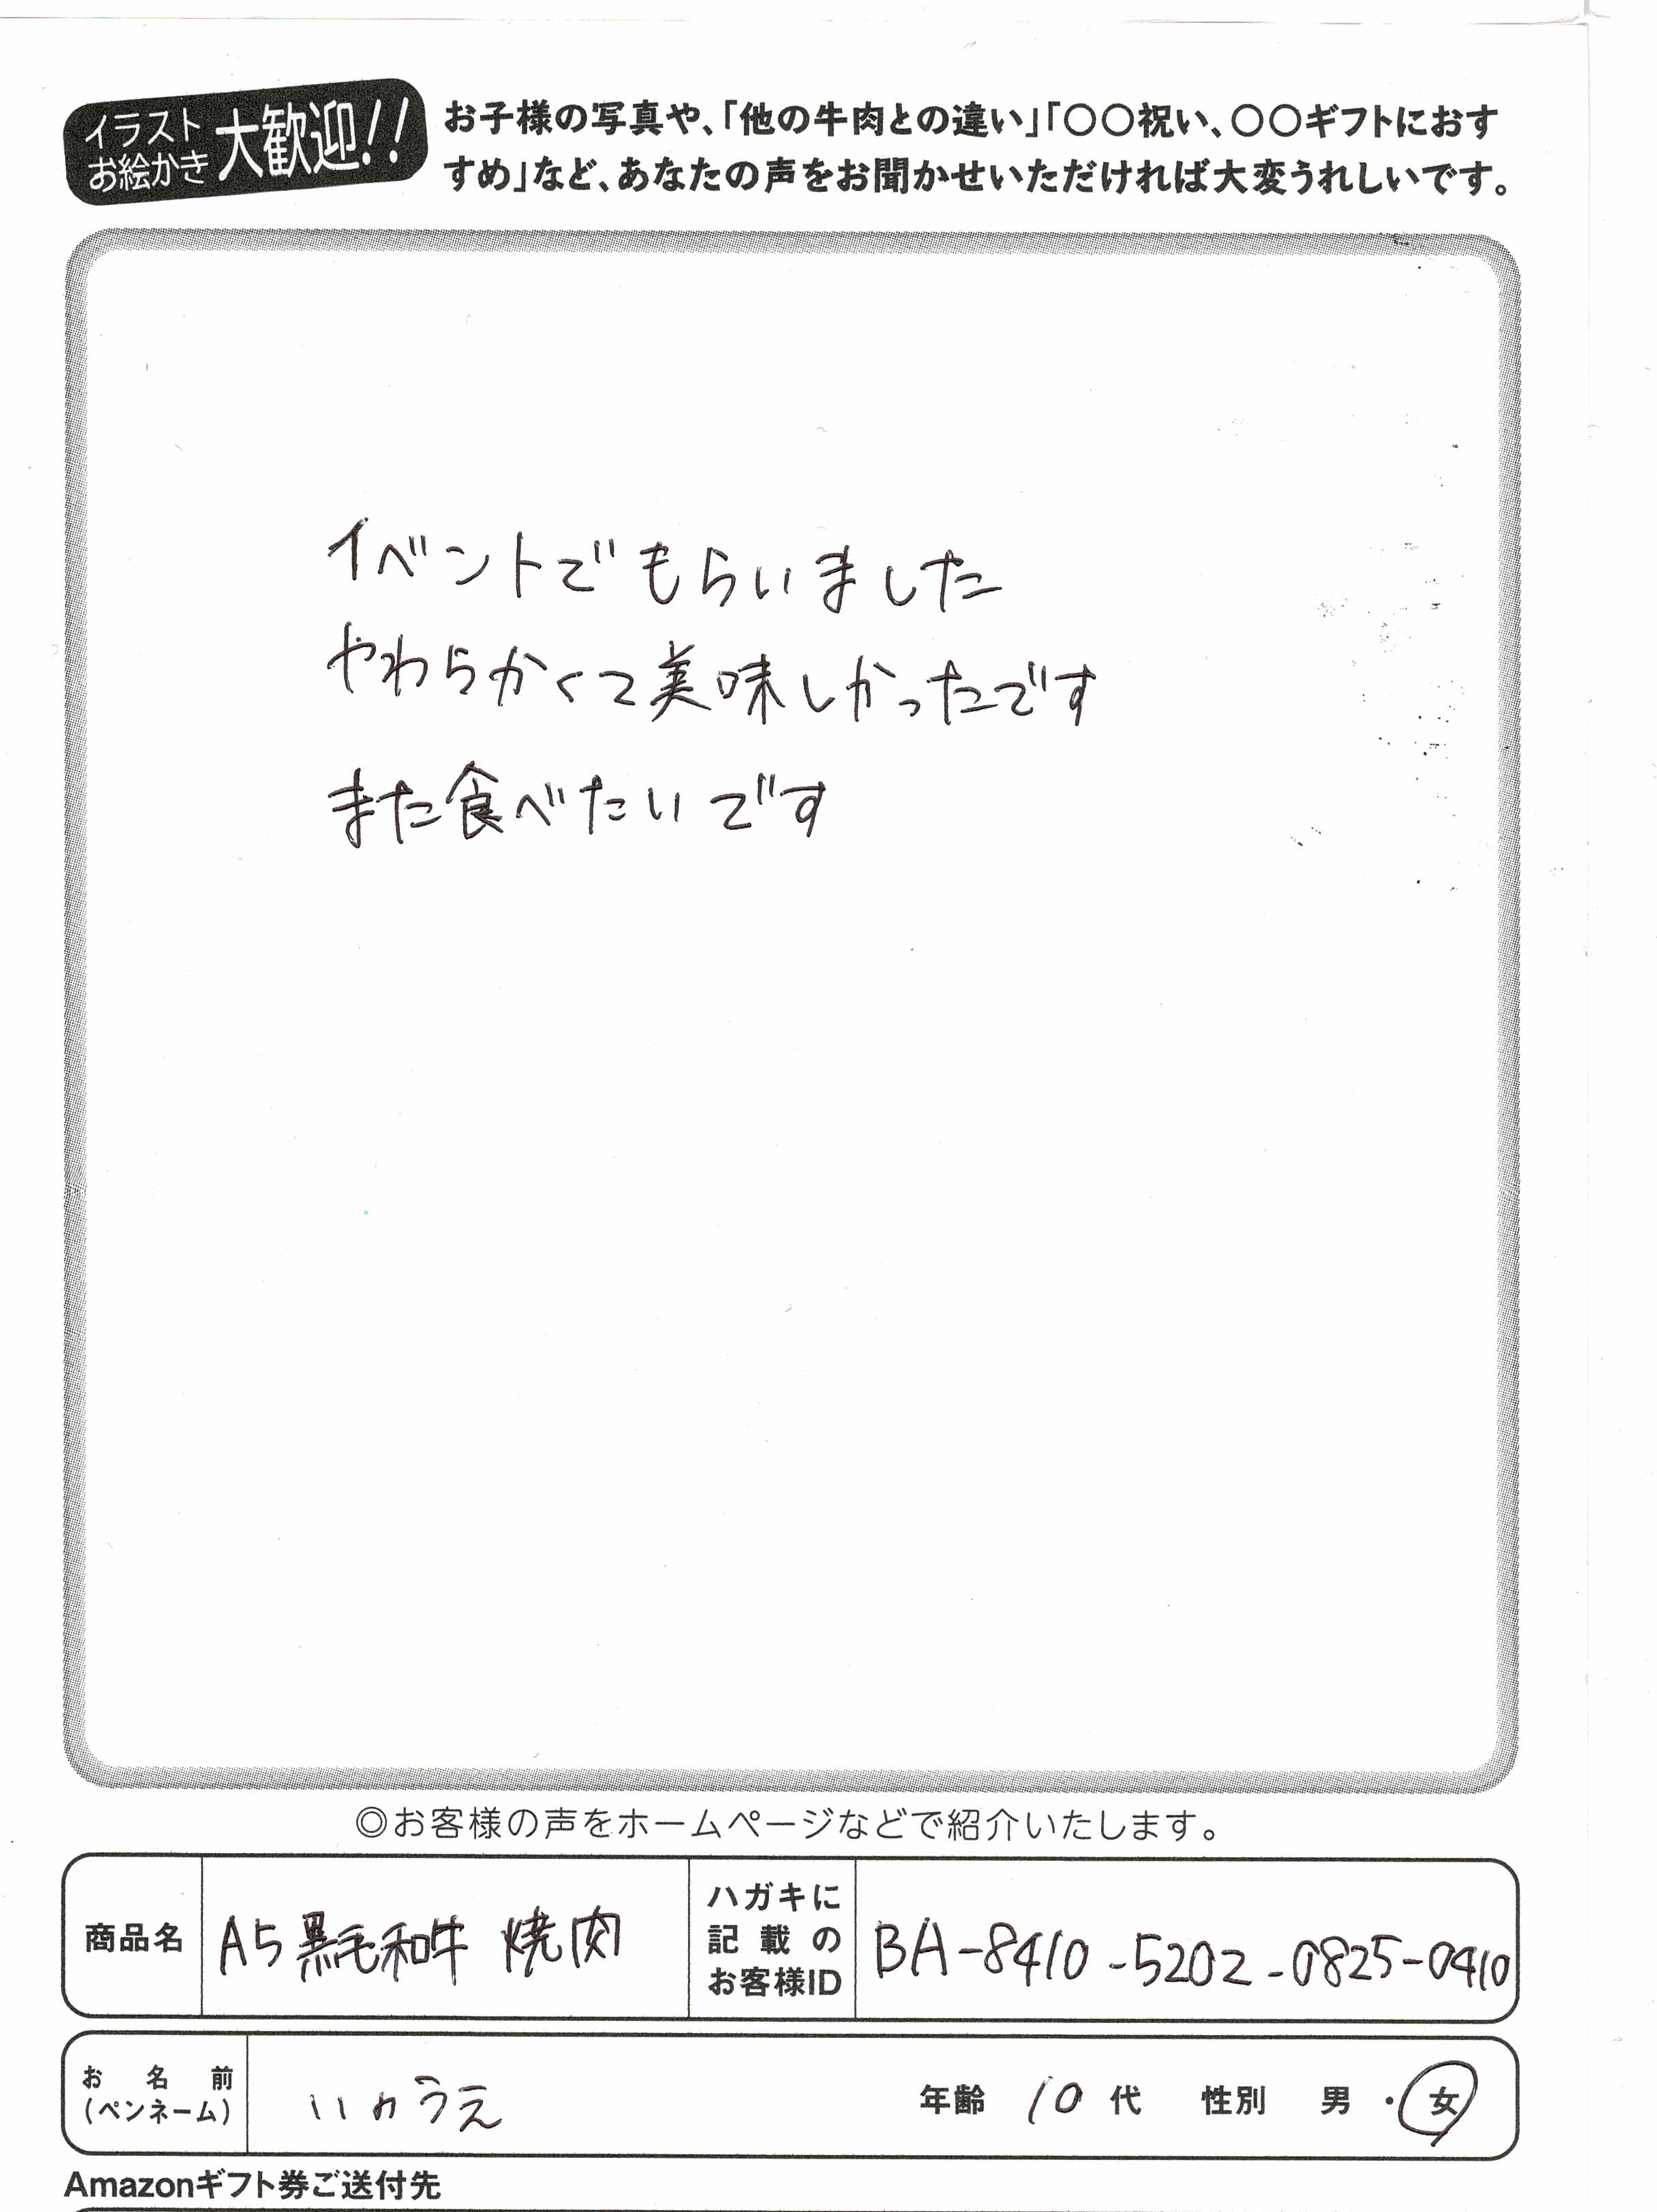 イラスト
お絵かき
大歓迎!!
お子様の写真や、「他の牛肉との違い」「〇〇祝い、〇〇ギフトにおす
すめ」など、あなたの声をお聞かせいただければ大変うれしいです。
イベントでもらいました
やわらかくて美味しかったです
また食べたいです
◎お客様の声をホームページなどで紹介いたします。
商品名
A5黒毛和牛 焼肉
ハガキに
記載の
お客様ID
BA-8410-5202-0825-0410
お名前
(ペンネーム)
年齢 10代 性別 男・女
Amazonギフト券ご送付先